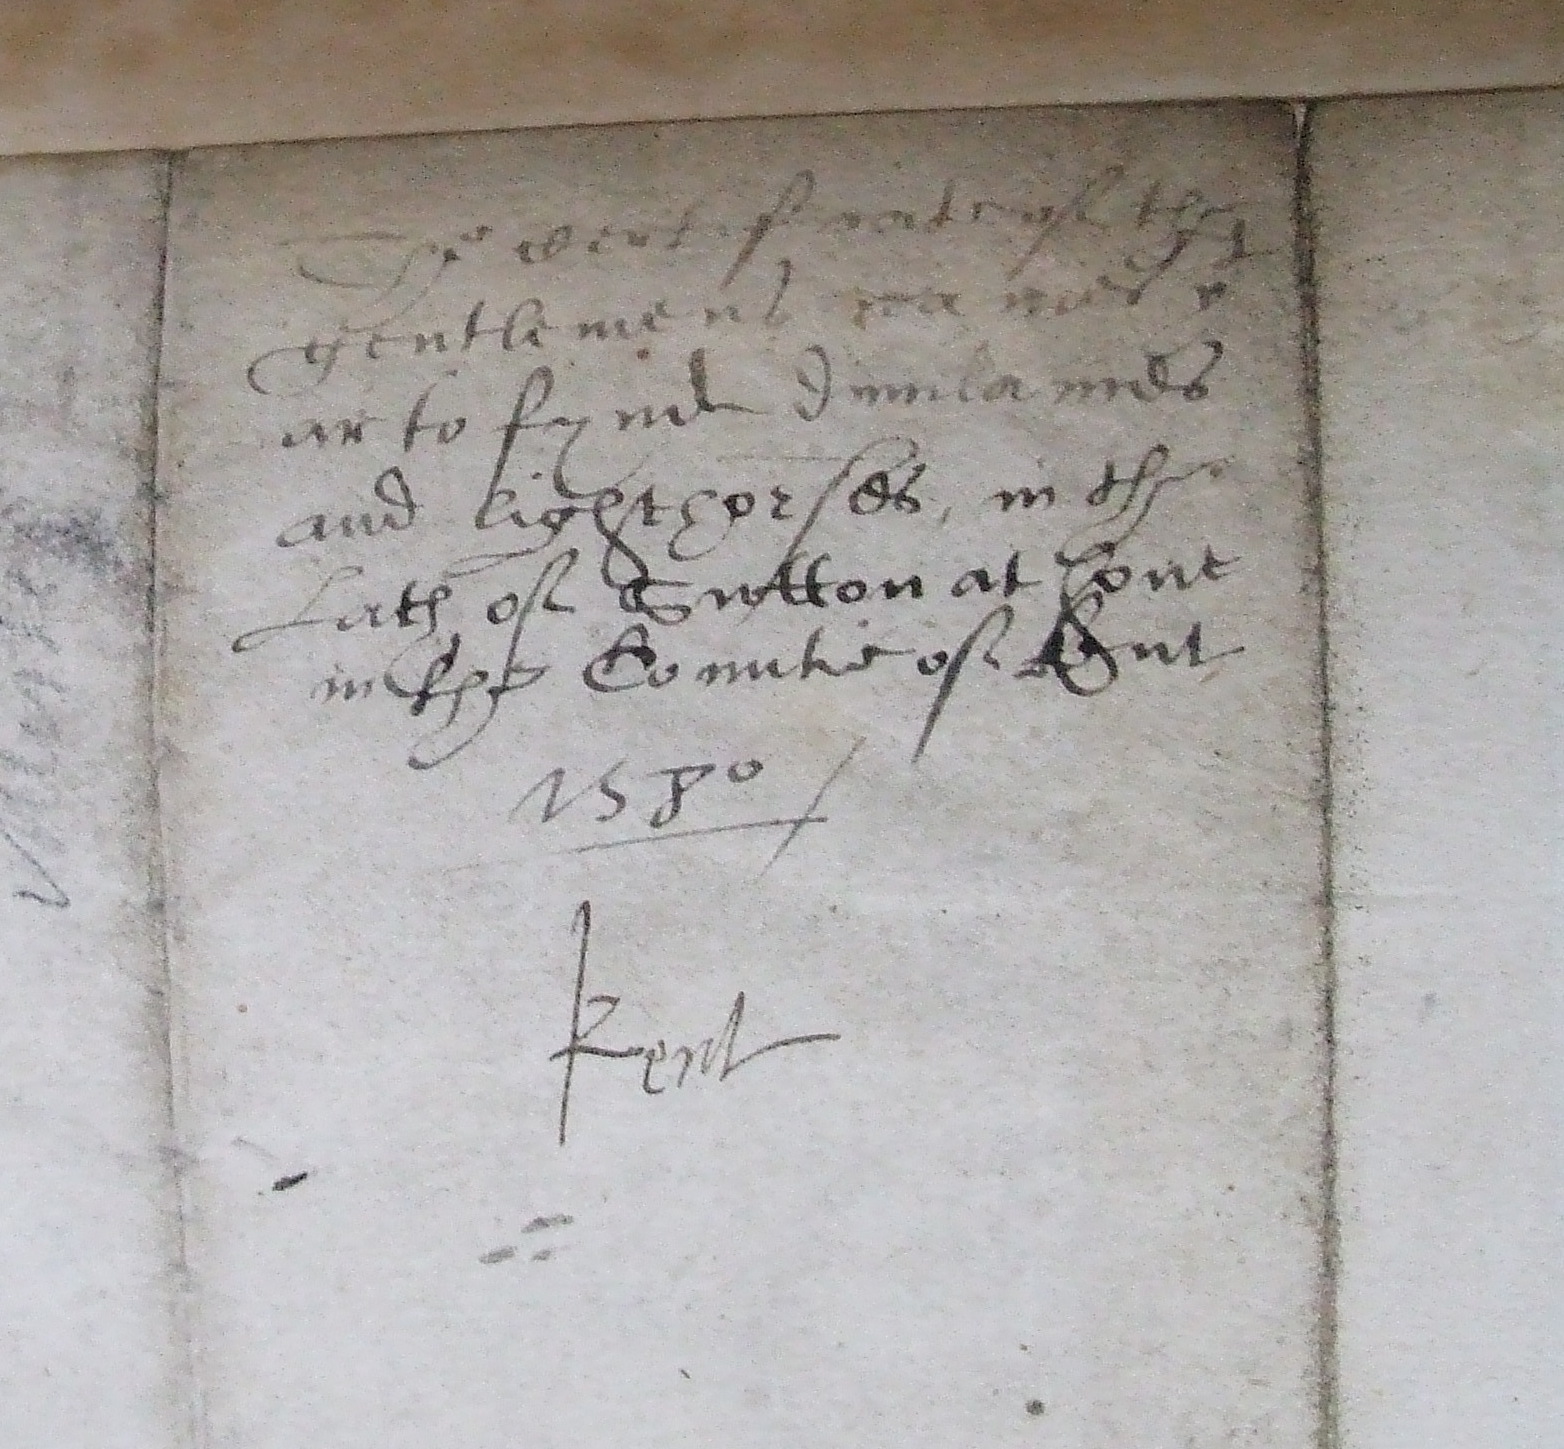 The certificate of the
gentlemens names y
ar to fynde Dimilances
and lighthorses, in the
Lath of Sutton at hone
in the Countie of Kent
1580
Kent